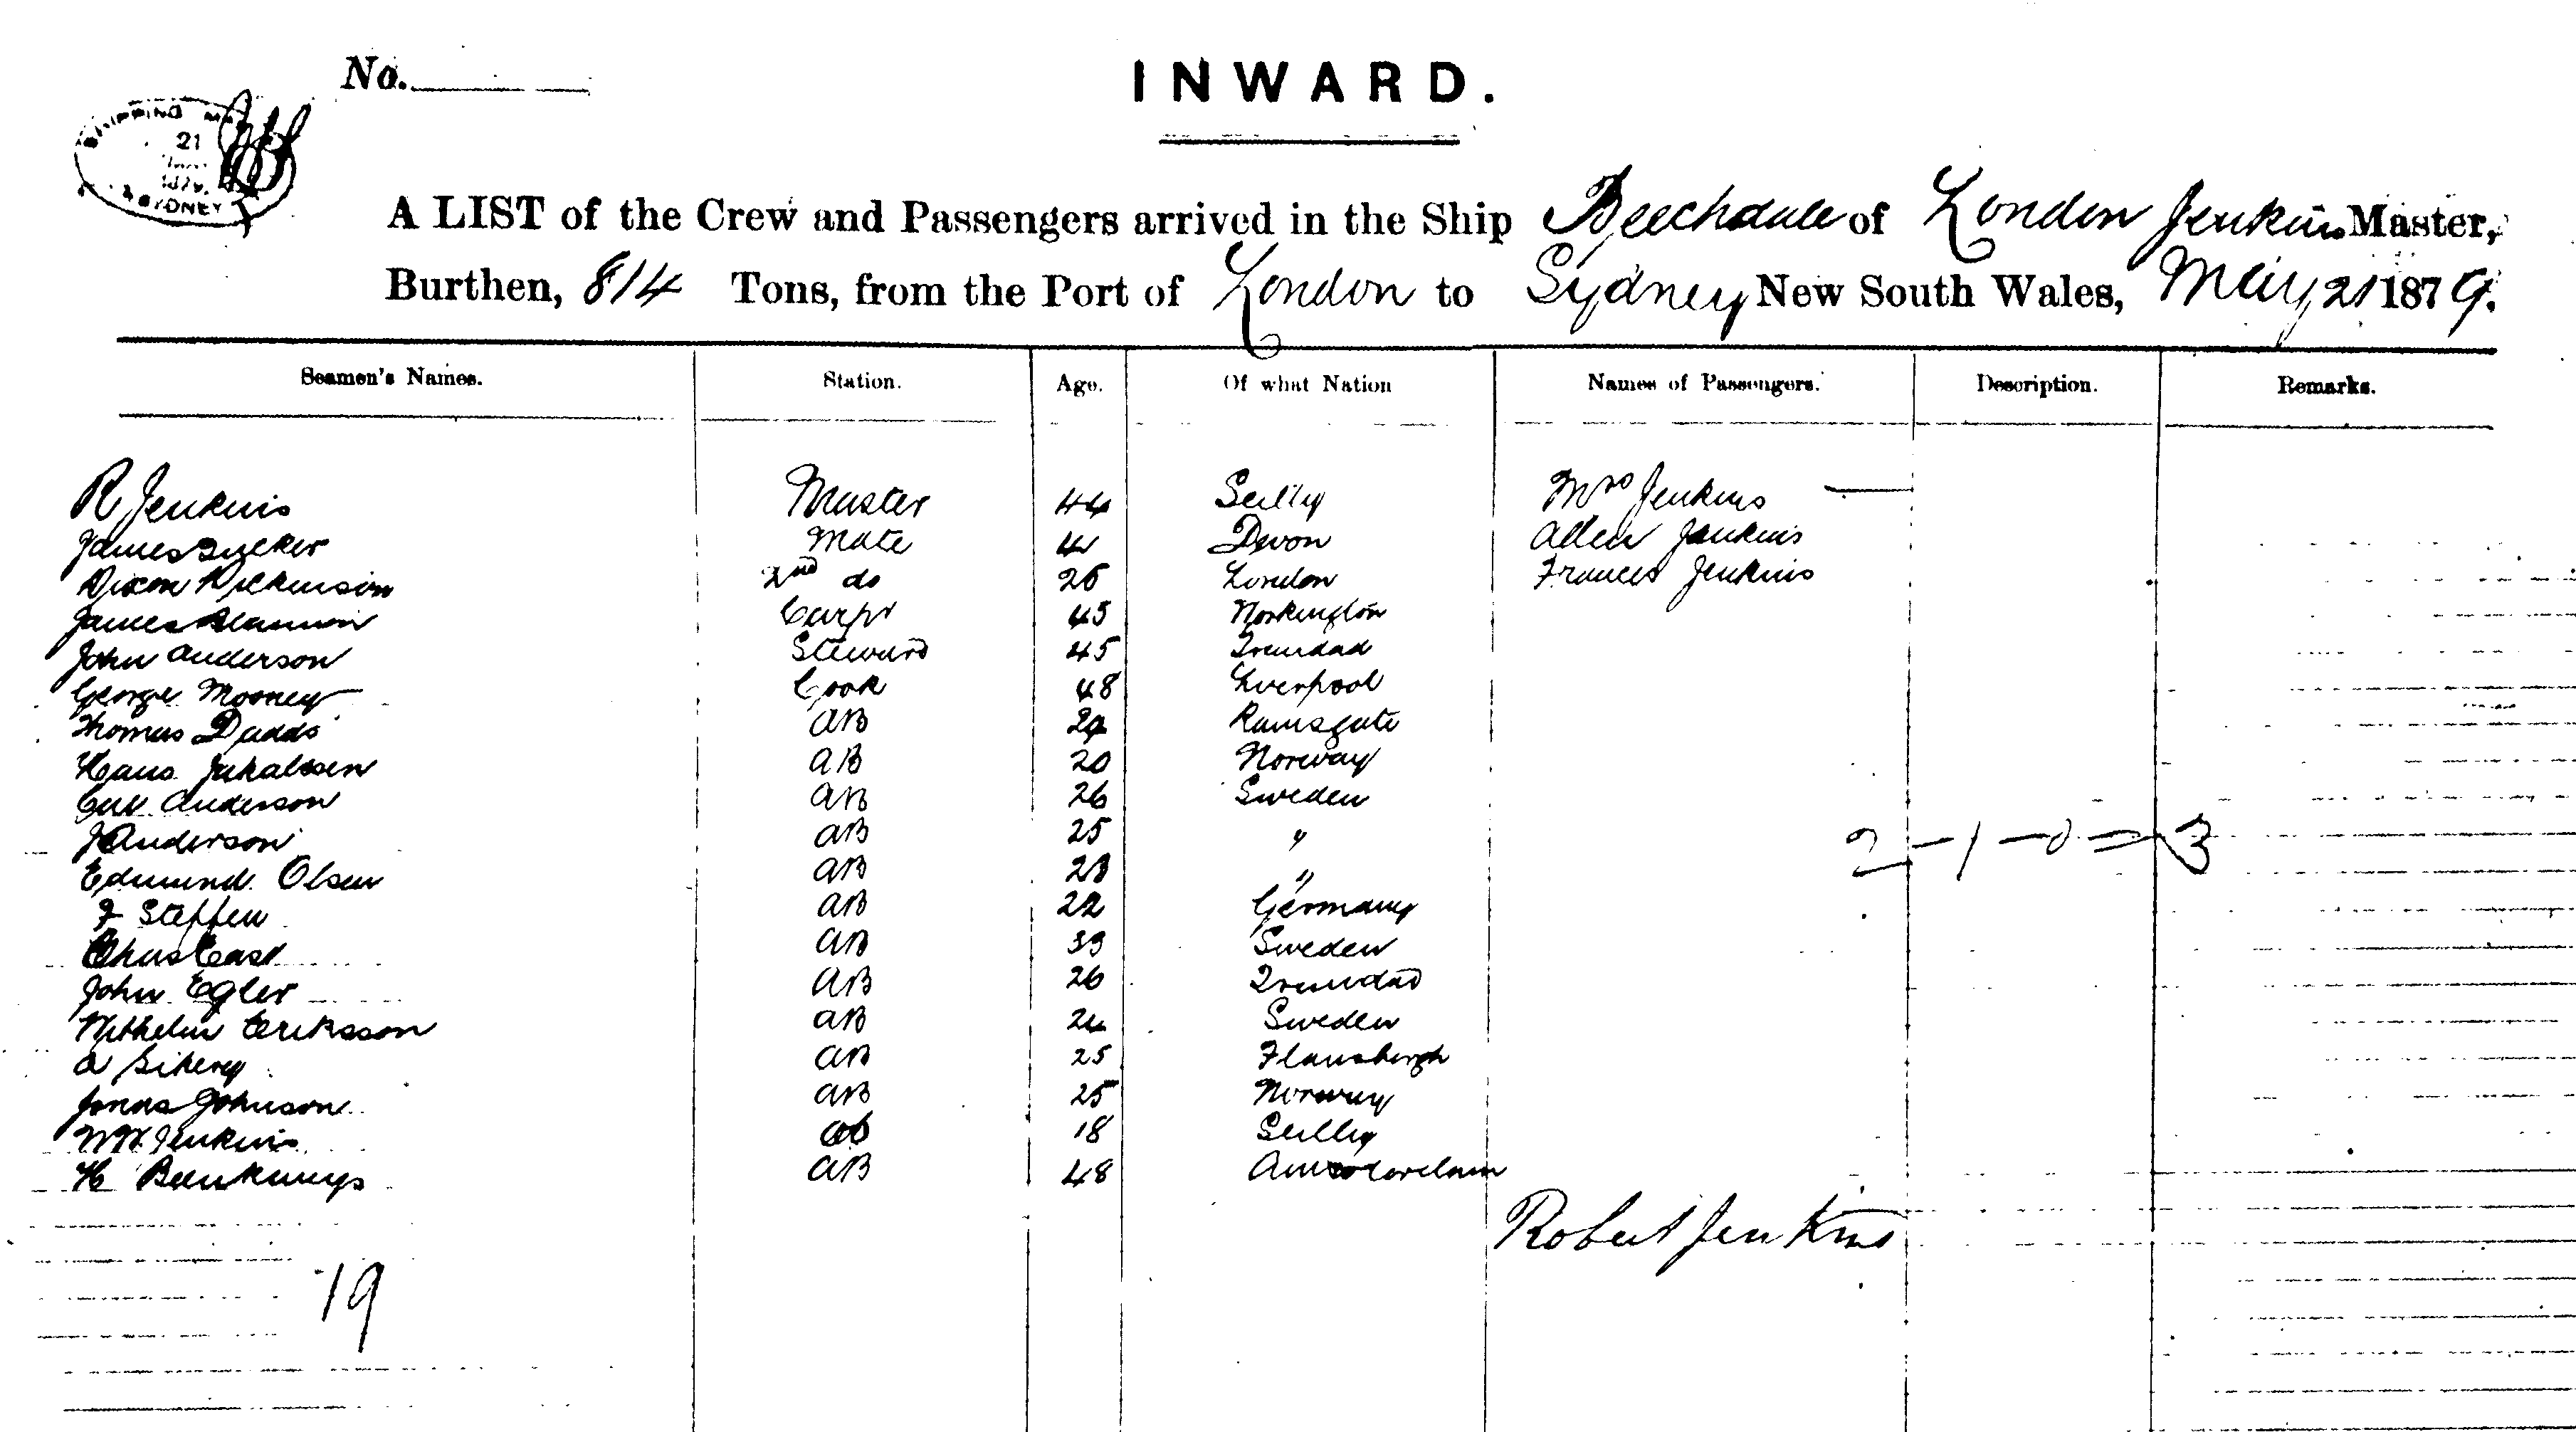 No.
INWARD.
SHIPPING
21
1879
SYDNEY
A LIST of the Crew and Passengers arrived in the Ship Beechdale of London Jenkins Master,
Burthen, 814 Tons, from the Port of London to Sydney New South Wales, May 21 1879.
Seamen's Names. Station. Age. Of what Nation Names of Passengers. Description. Remarks.
R Jenkins Master 44 Scilly Mrs Jenkins
James Mate 41 Devon Allen Jenkins
Dixon Dickinson 2nd do 26 London Frances Jenkins
James Carpr 45
John Anderson Steward 45 Trinidad
George Mooney Cook 48 Liverpool
Thomas Dadds AB 29 Ramsgate
Hans AB 20 Norway
Carl Anderson AB 26 Sweden
J Anderson AB 25 "
Edmund Olsen AB 23 "
F Steffen AB 22 Germany
AB 39 Sweden
John Egler AB 26 Trinidad
Wilhelm Eriksson AB 24 Sweden
A AB 25 Flansburgh
Jonas Johnson AB 25 Norway
W H Jenkins 18 Scilly
H AB 48 Amsterdam
2 - 1 - 0 = 3
Robert Jenkins
19